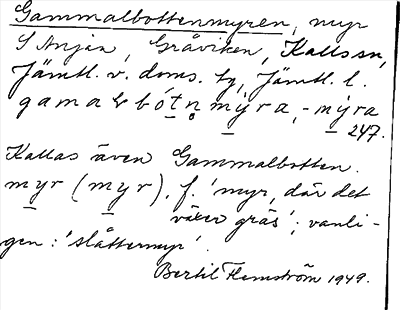 Gammalbottenmyren, myr
S Anjan, Gråviken, Kalls sn,
Jämtl. v. doms. tg, Jämtl. l.
gamalbótn mýra, -mýra
247.
Kallas även Gammalbotten.
myr (myr), f. 'myr, där det
växer gräs'; vanli-
gen: 'slåttermyr'.
Bertil Flemström 1949.